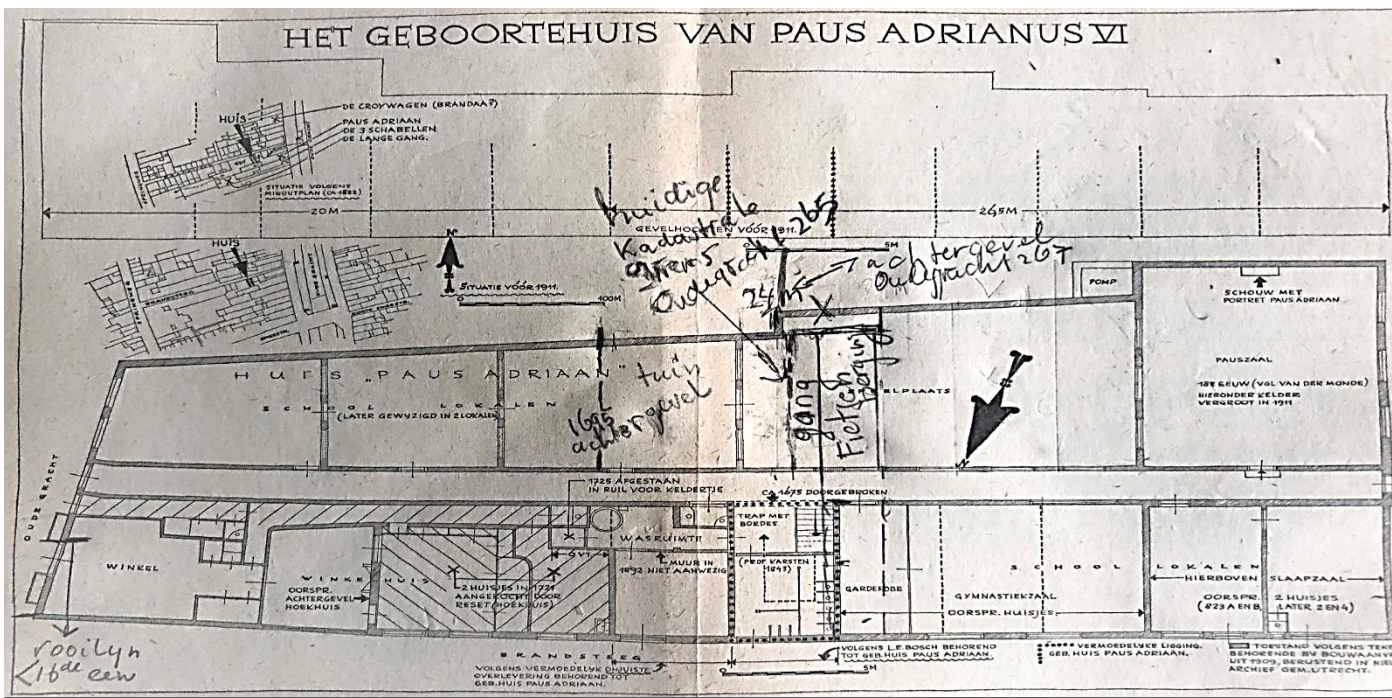 HET GEBOORTEHUIS VAN PAUS ADRIANUS VI
DE CROYWAGEN (BRANDAA?)
HUIS
PAUS ADRIAAN
DE 3 SCHABELLEN
DE LANGE GANG.
SITUATIE VOLGENS
MINUUTPLAN (CA 1822)
20M
24,5M
GEVELHOOGTEN VÓÓR 1911.
huidige
Kadastrale
grens
Oudegracht 265
HUIS
BRANDSTEEG
N
SITUATIE VÓÓR 1911.
0
100M
5M
24 m
achtergevel
Oudegracht 267
POMP
SCHOUW MET
PORTRET PAUS ADRIAAN
PAUSZAAL
18E EEUW (VGL VAN DER MONDE)
HIERONDER KELDER
VERGROOT IN 1911
HUIS „PAUS ADRIAAN"
tuin
SCHOOL LOKALEN
(LATER GEWYZIGD IN 2 LOKALEN)
1695
achtergevel
gang
Fietsen
Berging
ELPLAATS
N
OUDE GRACHT
1725 AFGESTAAN
IN RUIL VOOR KELDERTJE
CA 1675 DOORGEBROKEN
TRAP MET
BORDES
WASRUIMTE
6 VT.
MUUR IN
1892 NIET AANWEZIG
(PROF. KARSTEN
1843)
WINKEL
WINKELHUIS
OORSPR.
ACHTERGEVEL
HOEKHUIS
2 HUISJES IN 1721
AANGEKOCHT DOOR
RESET (HOEKHUIS)
GARDEROBE
GYMNASTIEKZAAL
OORSPR. HUISJES
SCHOOL LOKALEN
HIERBOVEN SLAAPZAAL
OORSPR. 2 HUISJES
(823 A EN B, LATER 2 EN 4)
rooilyn
<16de eeuw
BRANDSTEEG
VOLGENS VERMOEDELYK ONJUISTE
OVERLEVERING BEHOREND TOT
GEB. HUIS PAUS ADRIAAN.
0
5M
VOLGENS L.E. BOSCH BEHOREND
TOT GEB. HUIS PAUS ADRIAAN.
VERMOEDELYKE LIGGING.
GEB. HUIS PAUS ADRIAAN.
TOESTAND VOLGENS TEKE
BEHORENDE BY BOUWAANV
UIT 1909, BERUSTEND IN NIE
ARCHIEF GEM. UTRECHT.